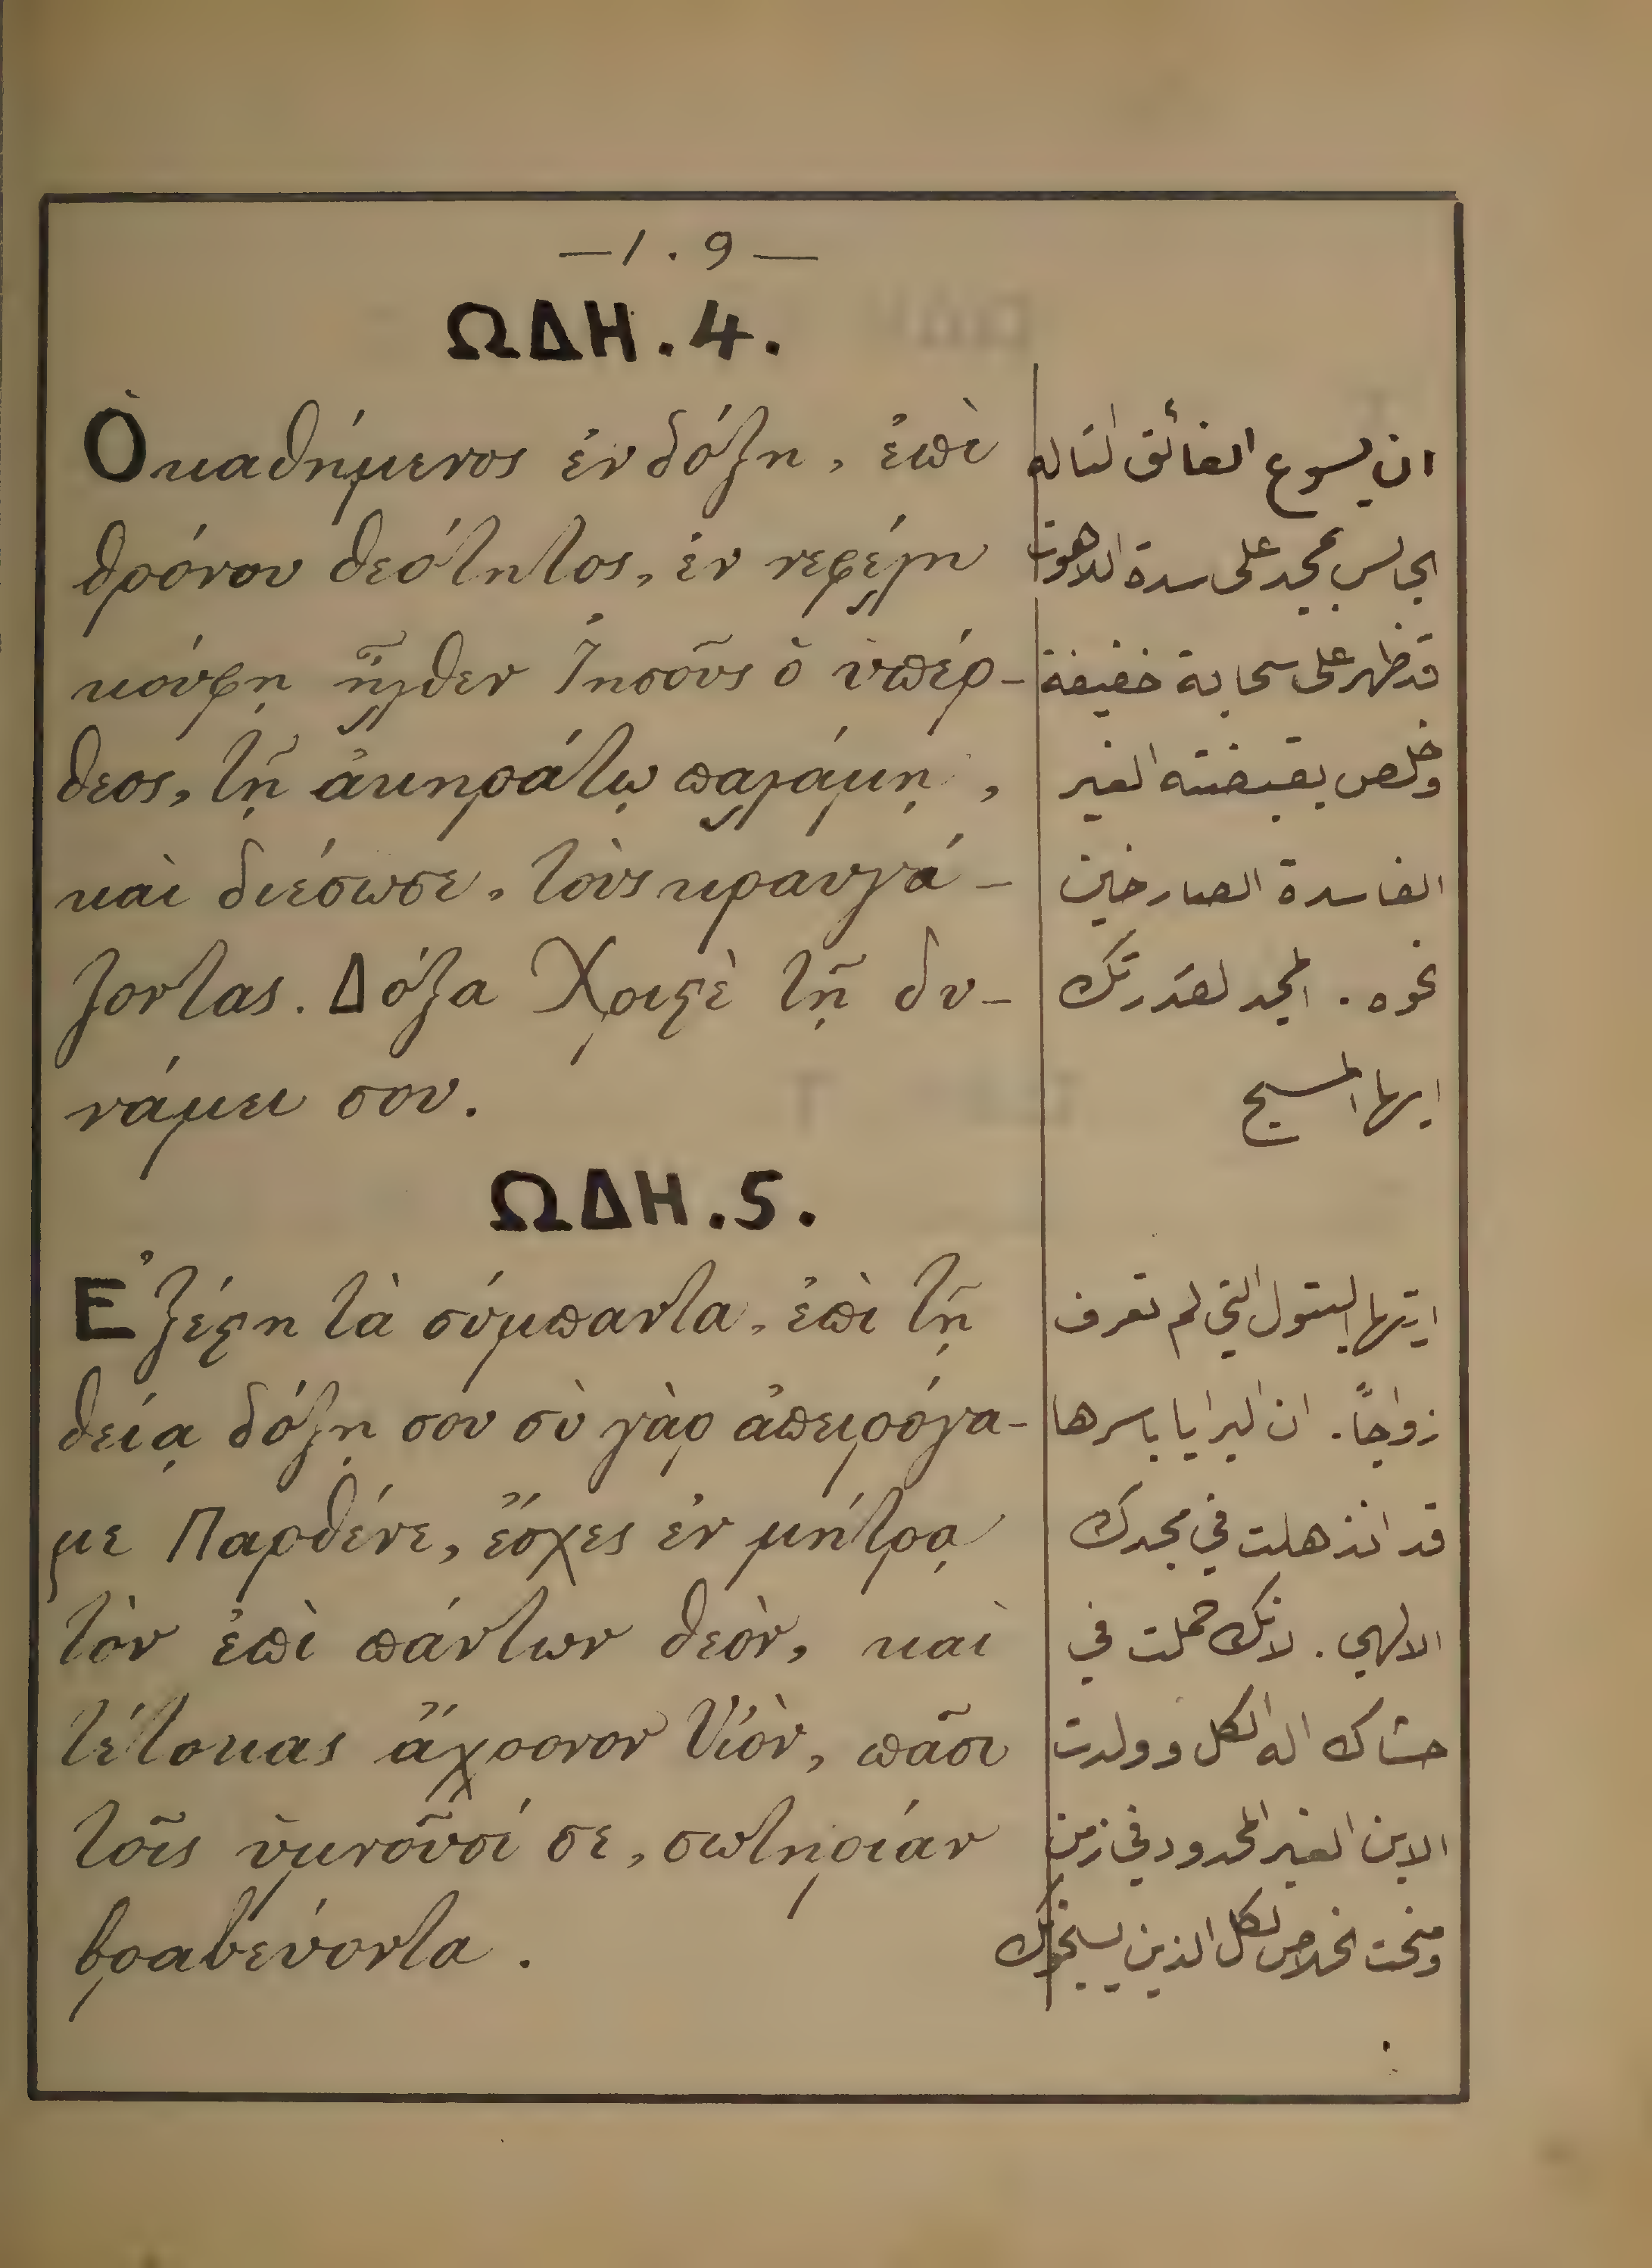 —1.9—
ΩΔΗ.4.
Ὁ καθήμενος ἐν δόξη, ἐπὶ
θρόνου θεότητος, ἐν νεφέλη
κούφῃ ἦλθεν Ἰησοῦς ὁ ὑπέρ-
θεος, τῇ ἀκηράτῳ παλάμῃ,
καὶ διέσωσε, τοὺς κραυγά-
ζοντας. Δόξα Χριστὲ τῇ δυ-
νάμει σου.
ان يسوع الفائق التاله
الجالس بمجد على سدة اللاهوت
قد ظهر على سحابة خفيفة
وخلص بقبضته الغير
الفاسدة الصارخين
نحوه. المجد لقدرتك
ايها المسيح
ΩΔΗ.5.
Ἐξέστη τὰ σύμπαντα, ἐπὶ τῇ
θείᾳ δόξῃ σου σὺ γὰρ ἀπειρόγα-
με Παρθένε, ἔσχες ἐν μήτρᾳ
τὸν ἐπὶ πάντων θεὸν, καὶ
τέτοκας ἄχρονον Υἱὸν, πᾶσι
τοῖς ὑμνοῦσί σε, σωτηρίαν
βραβεύοντα.
ايتها البتول التي لم تعرف
زواجاً. ان البرايا باسرها
قد انذهلت في مجدك
الالهي. لانك حملت في
حشاك اله الكل وولدت
الابن الغير المحدود في زمن
ومنحت الخلاص لكل الذين يسبحونك